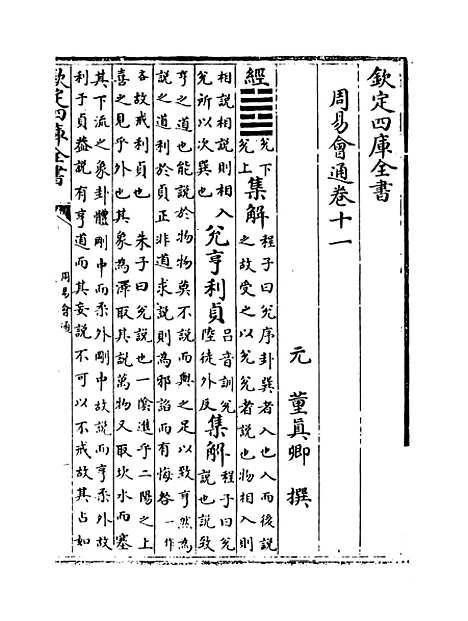 欽定四庫全書
周易會通卷十一
元 董真卿 撰
經 兌下兌上 集解 程子曰兌序卦巽者入也入而後說
之故受之以兌兌者說也物相入則
相說相說則相入
兌所以次巽也 兌亨利貞 呂音訓兌
陸徒外反 集解 程子曰兌
說也說致
亨之道也能說於物物莫不說而與之足以致亨然為
說之道利於貞正非道求說則為邪諂而有悔咎 一作
吝故戒利貞也 朱子曰兌說也一陰進乎二陽之上
喜之見乎外也其象為澤取其說萬物又取坎水而塞
其下流之象卦體剛中而柔外剛中故說而亨柔外故
利于貞葢說有亨道而其妄說不可以不戒故其占如
欽定四庫全書
周易會通